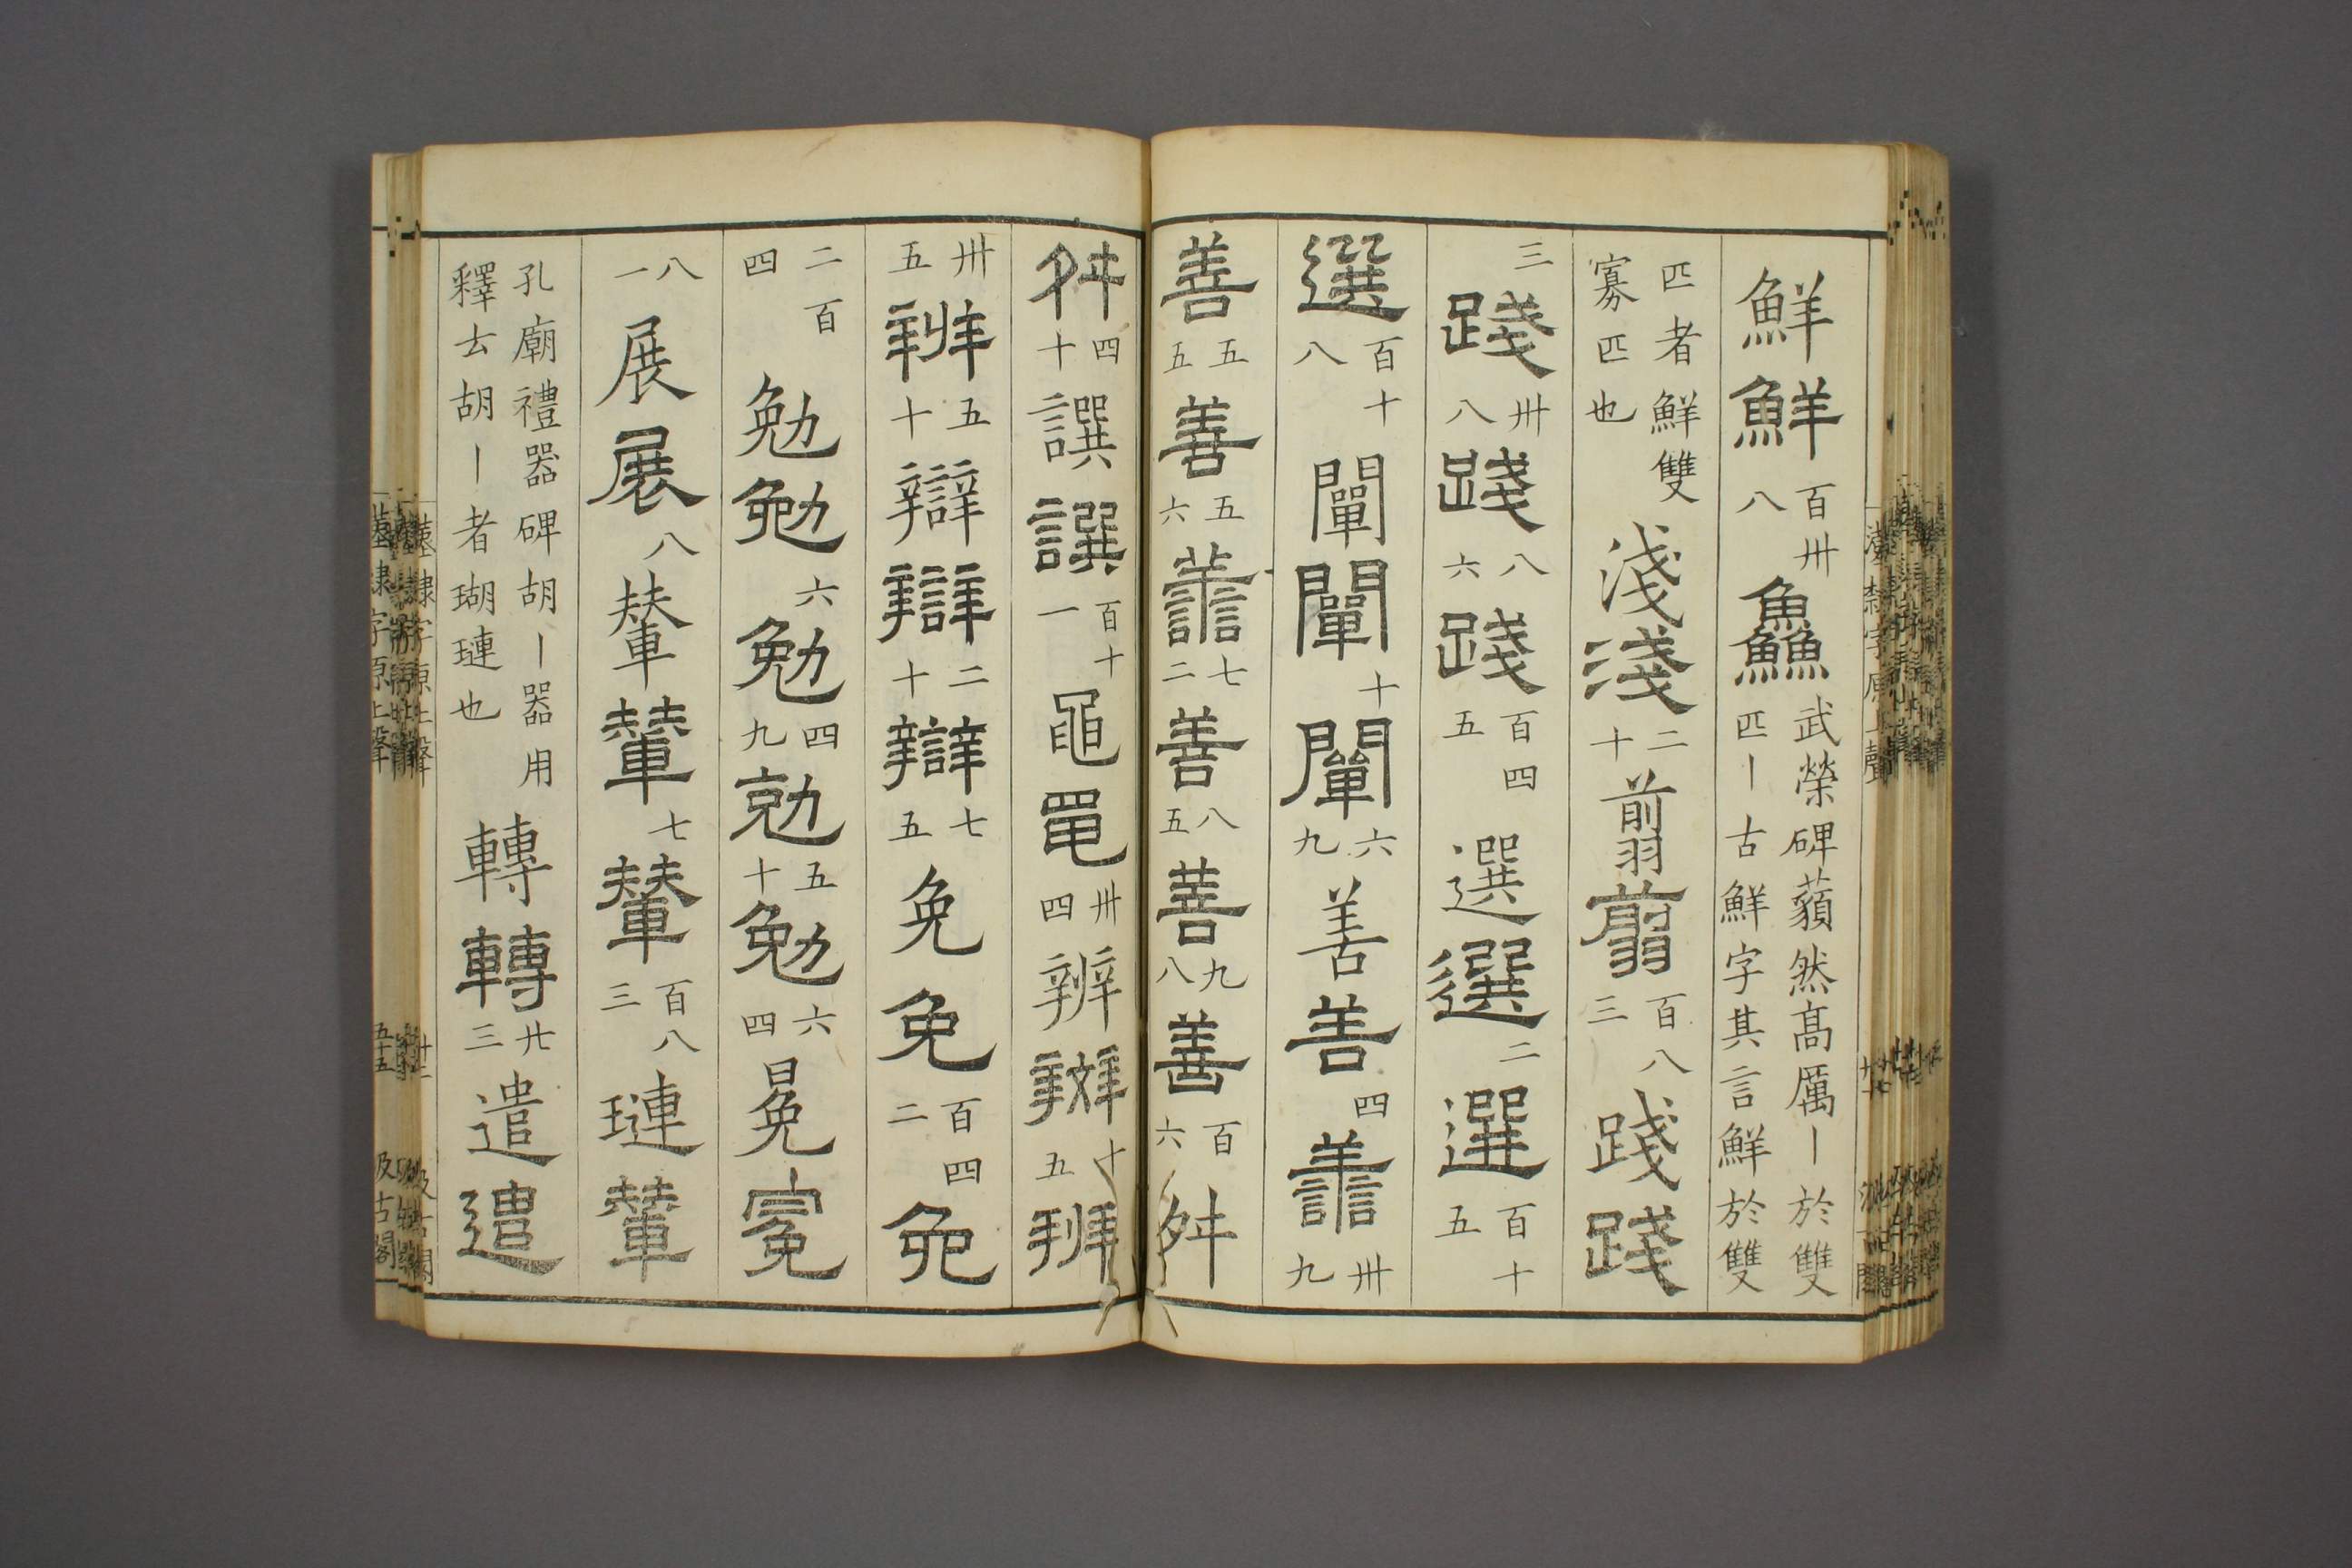 鮮鮮百卅八鱻武榮碑藬然髙厲丨於雙匹丨古鮮字其言鮮於雙
匹者鮮雙寡匹也淺淺二十翦翦百八三踐踐
三踐卅八踐八六踐百四五選選二選百十五
選百十八闡闡十闡六九善善四譱卅九
善五五善五六譱七二善八五善九八善百六舛
舛四十譔譔百十一黽黽卅四辨辨十五辨
卅五辨五十辯辯二十辯七五免免百四二免
二百四勉勉六勉四九勉五十勉六四冕冕
八一展展八輦輦七輦百八三璉輦
孔廟禮器碑胡丨器用釋云胡丨者瑚璉也轉轉廿三遣遣
漢隸字原上聲
汲古閣